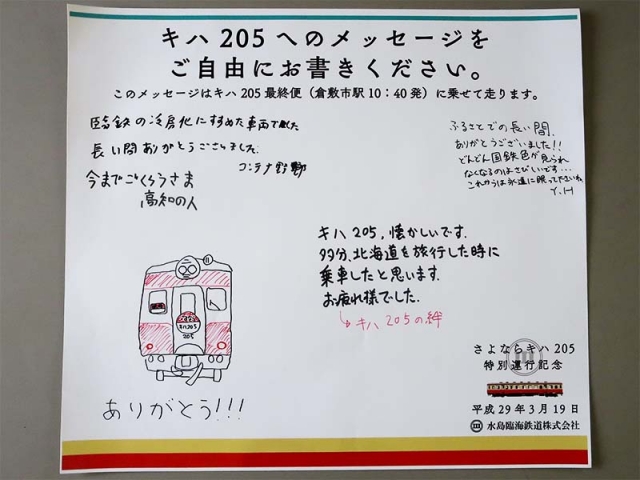 キハ205へのメッセージを
ご自由にお書きください。
このメッセージはキハ205最終便（倉敷市駅10：40発）に乗せて走ります。
臨鉄の冷房化にすすめた車両でした
長い間ありがとうございました。
コンテナ野郎
今までごくろうさま
高知の人
ふるさとでの長い間、
ありがとうございました!!
どんどん国鉄色が見られ
なくなるのはさびしいです…
これからは永遠に眠ってださいね
Y.H
キハ205，懐かしいです。
多分、北海道を旅行した時に
乗車したと思います。
お疲れ様でした。
↳キハ205の絆
さよなら
キハ205
205
ありがとう!!!
さよならキハ205
特別運行記念
平成29年3月19日
水島臨海鉄道株式会社